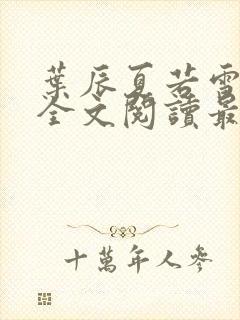 葉辰夏若雪
全文閱讀最
十萬年人參